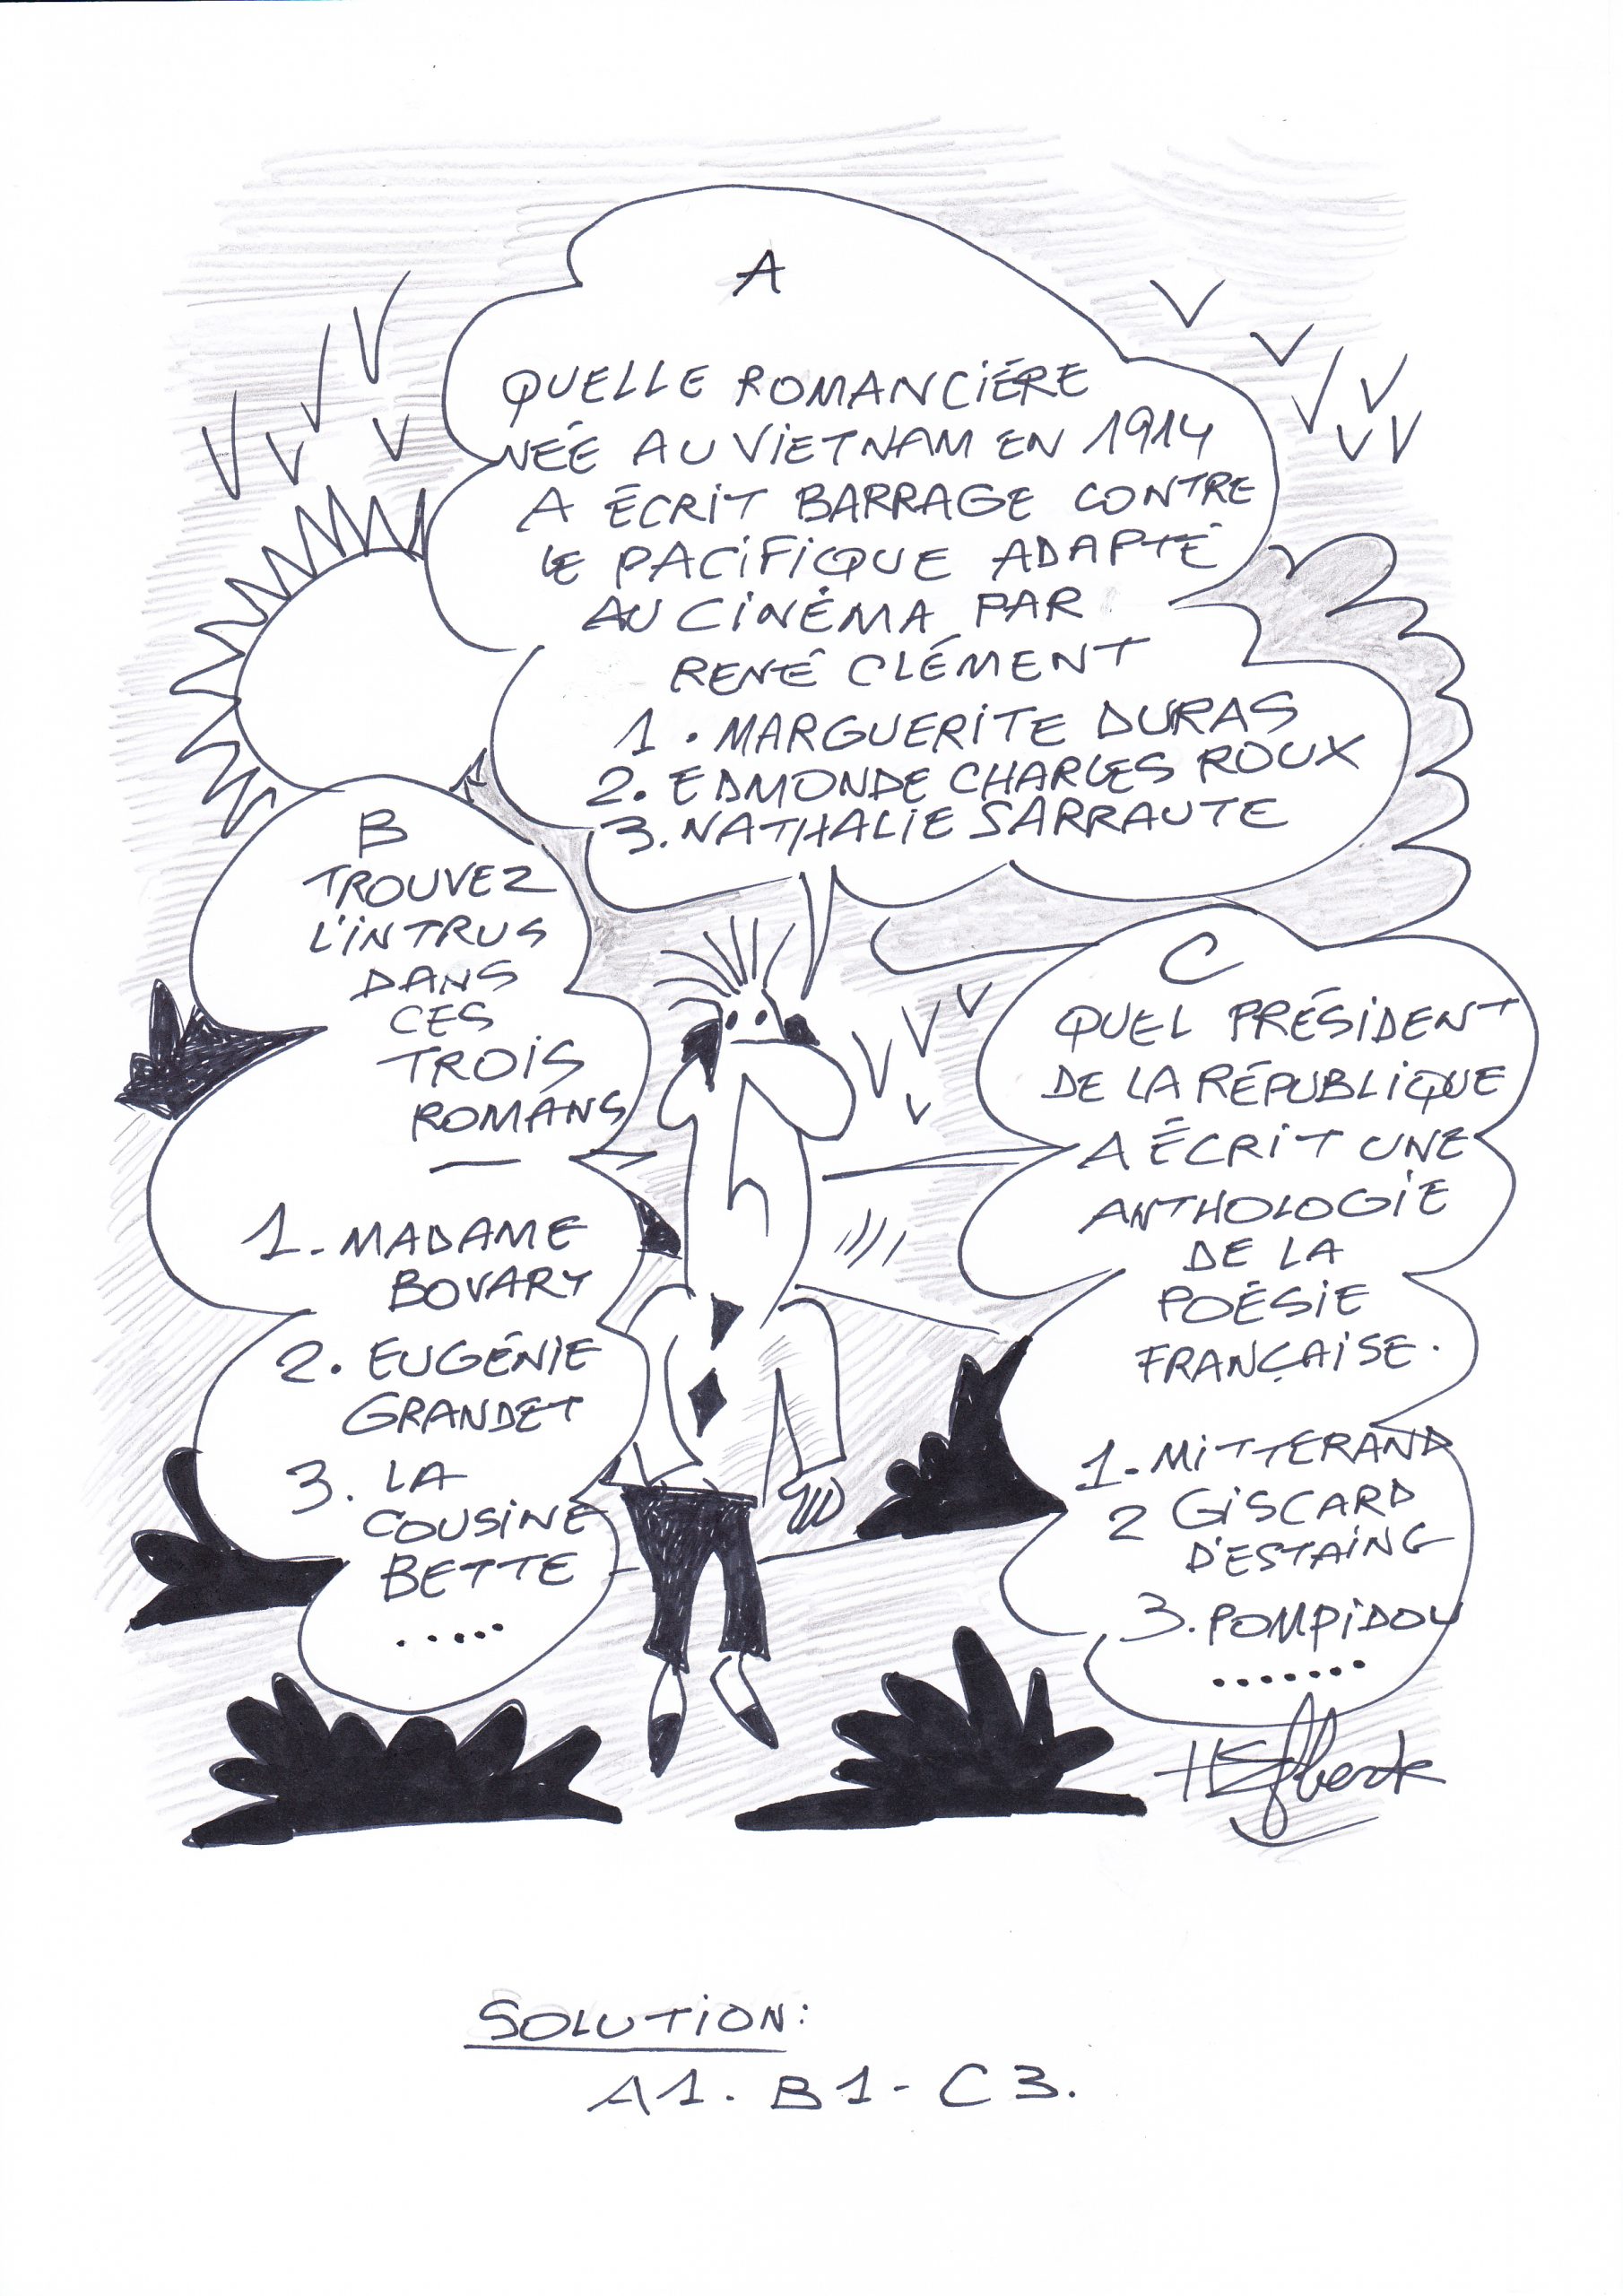 A
QUELLE ROMANCIÉRE
NÉE AU VIETNAM EN 1914
A ÉCRIT BARRAGE CONTRE
LE PACIFIQUE ADAPTÉ
AU CINÉMA PAR
RENÉ CLÉMENT
1. MARGUERITE DURAS
2. EDMONDE CHARLES ROUX
3. NATHALIE SARRAUTE
B
TROUVEZ
L'INTRUS
DANS
CES
TROIS
ROMANS
—
1. MADAME
BOVARY
2. EUGÉNIE
GRANDET
3. LA
COUSINE
BETTE
.....
C
QUEL PRÉSIDENT
DE LA RÉPUBLIQUE
A ÉCRIT UNE
ANTHOLOGIE
DE LA
POÉSIE
FRANÇAISE.
1. MITTERAND
2 GISCARD
D'ESTAING
3. POMPIDOU
.......
SOLUTION:
A1. B1- C3.